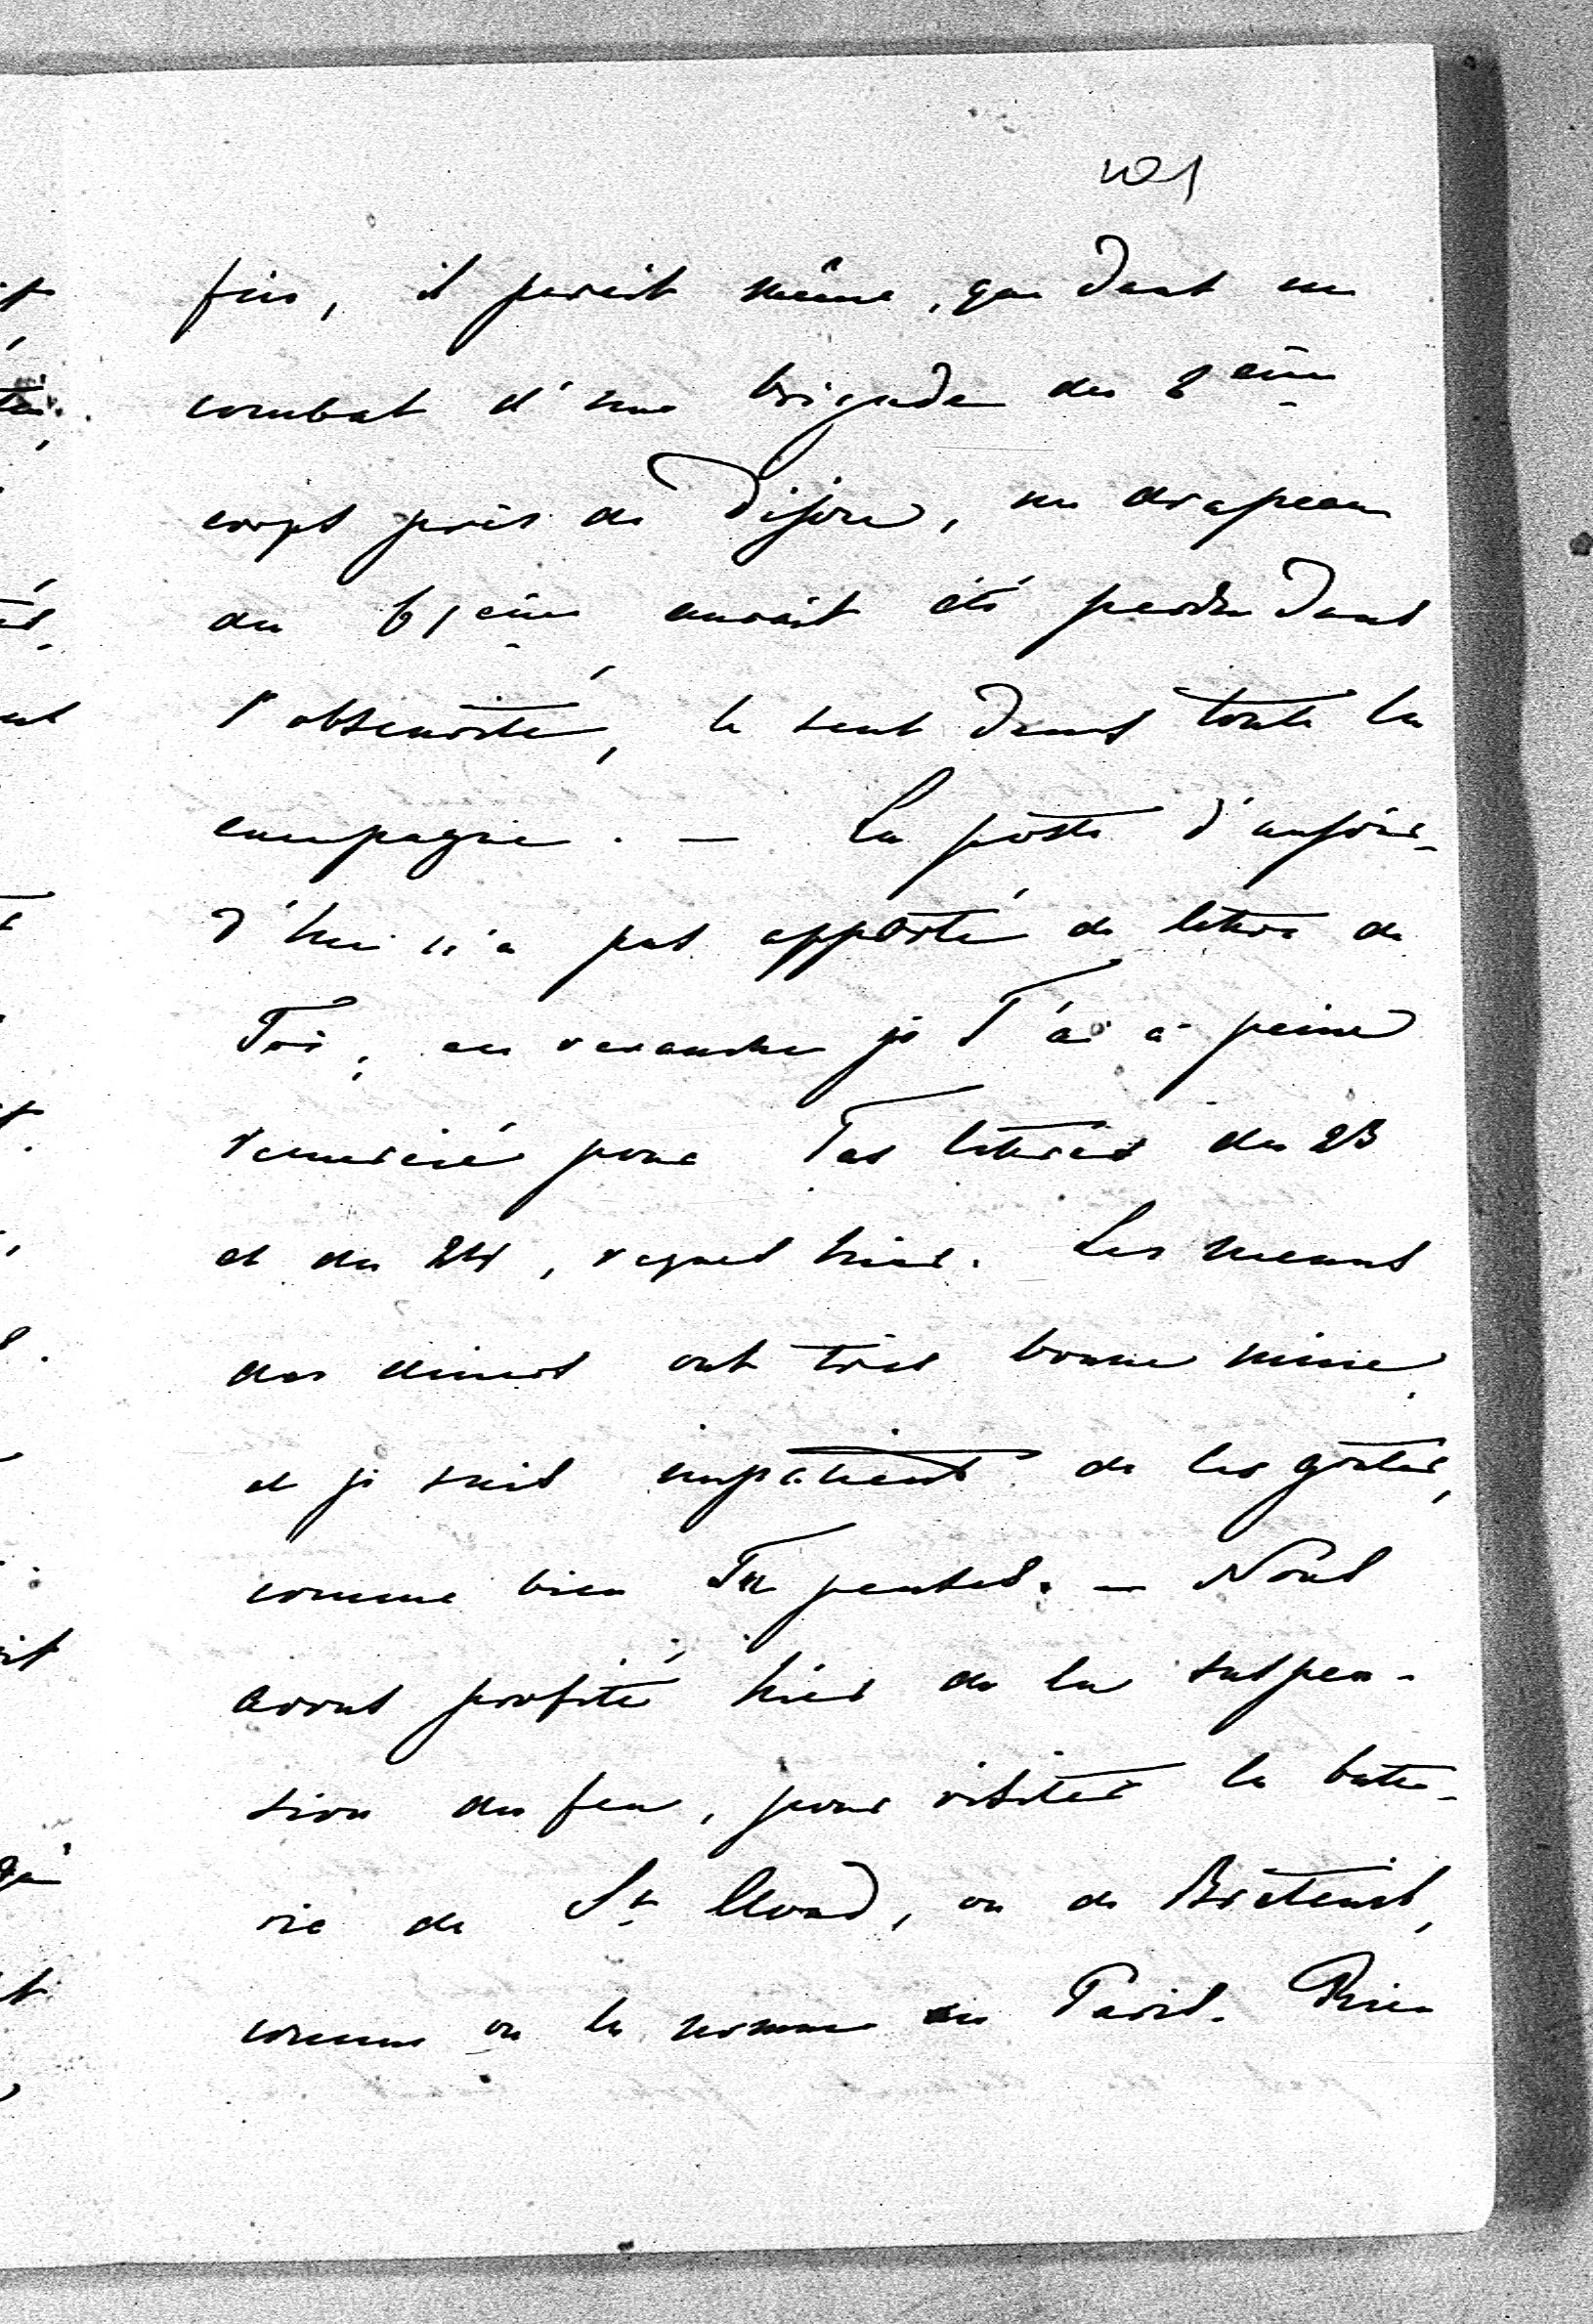 101
fois, il parait même, que dans un
combat d'une brigade du 2ème
corps près de Dijon, un drapeau
du 61ème aurait été perdu dans
l'obscurité, le seul dans toute la
campagne. — La poste d'aujour-
d'hui n'a pas apporté de lettre de
Toi, en revanche je T'ai à peine
remercié pour Tes lettres du 23
et du 24, reçues hier. Les menus
des diners ont très bonne mine
et je suis impatient de les goûter,
comme bien Tu penses. — Nous
avons profité hier de la suspen-
sion du feu, pour visiter la batte-
rie de St Cloud, ou de Bréteuil,
comme on la nomme à Paris. Rien